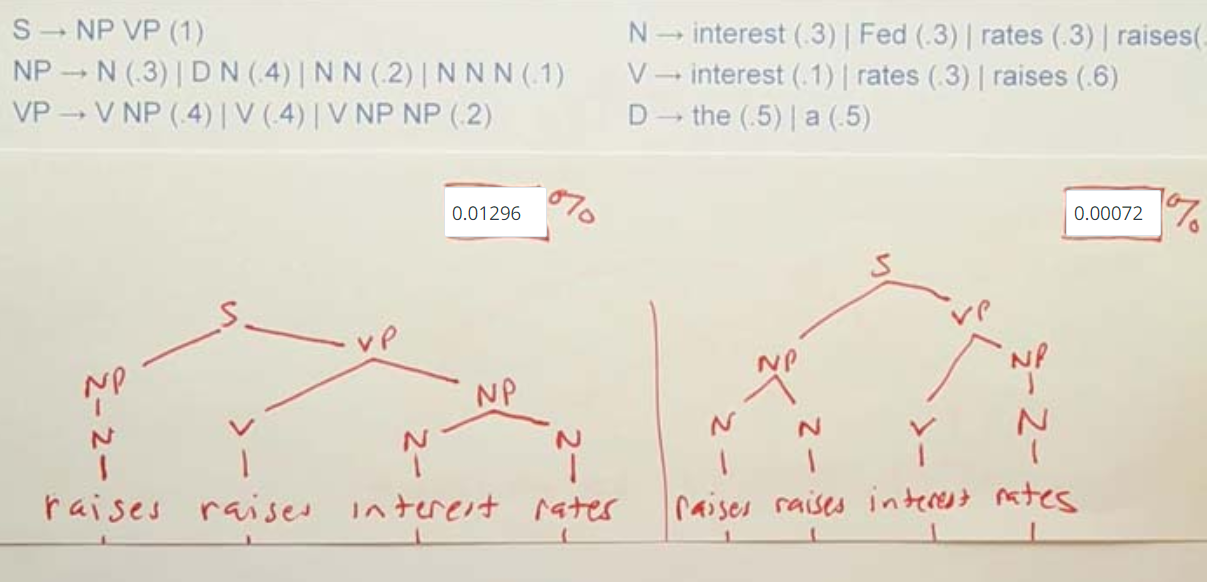 S → NP VP (1)
NP → N (.3) | D N (.4) | N N (.2) | N N N (.1)
VP → V NP (.4) | V (.4) | V NP NP (.2)
N → interest (.3) | Fed (.3) | rates (.3) | raises(.
V → interest (.1) | rates (.3) | raises (.6)
D → the (.5) | a (.5)
0.01296 %
S
VP
NP
NP
N
V
N
N
raises raises interest rates
0.00072 %
S
VP
NP
NP
N
N
V
N
raises raises interest rates